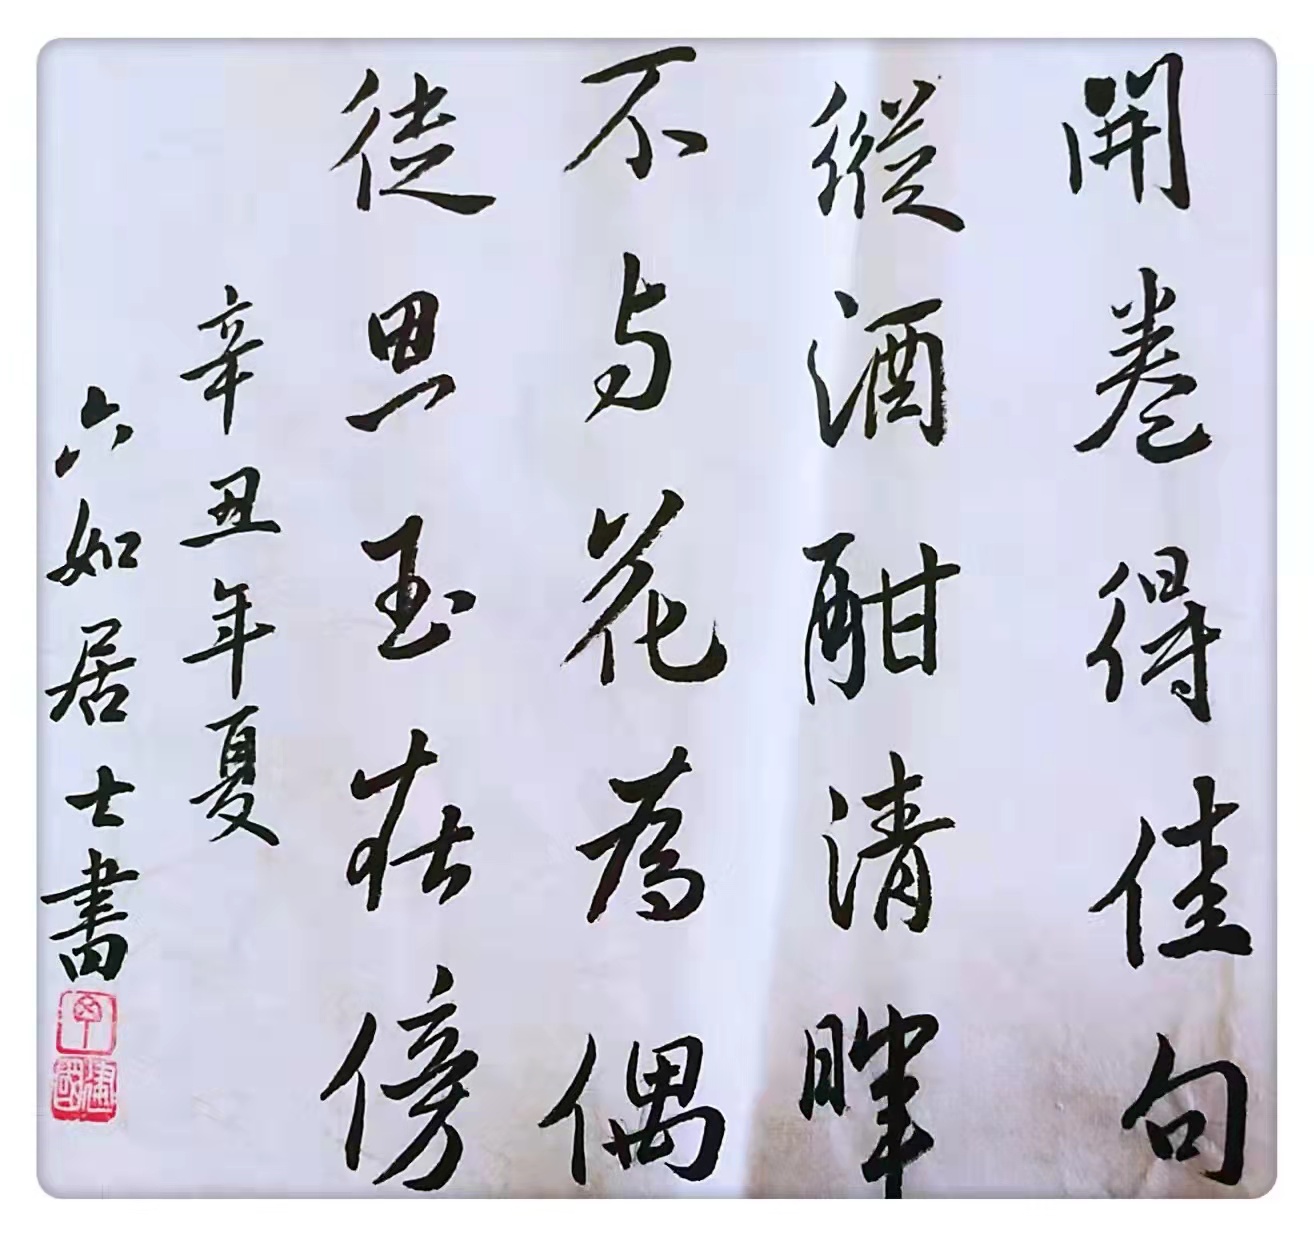 開卷得佳句
縱酒酣清畔
不与花為偶
徒思玉在傍
辛丑年夏
六如居士書